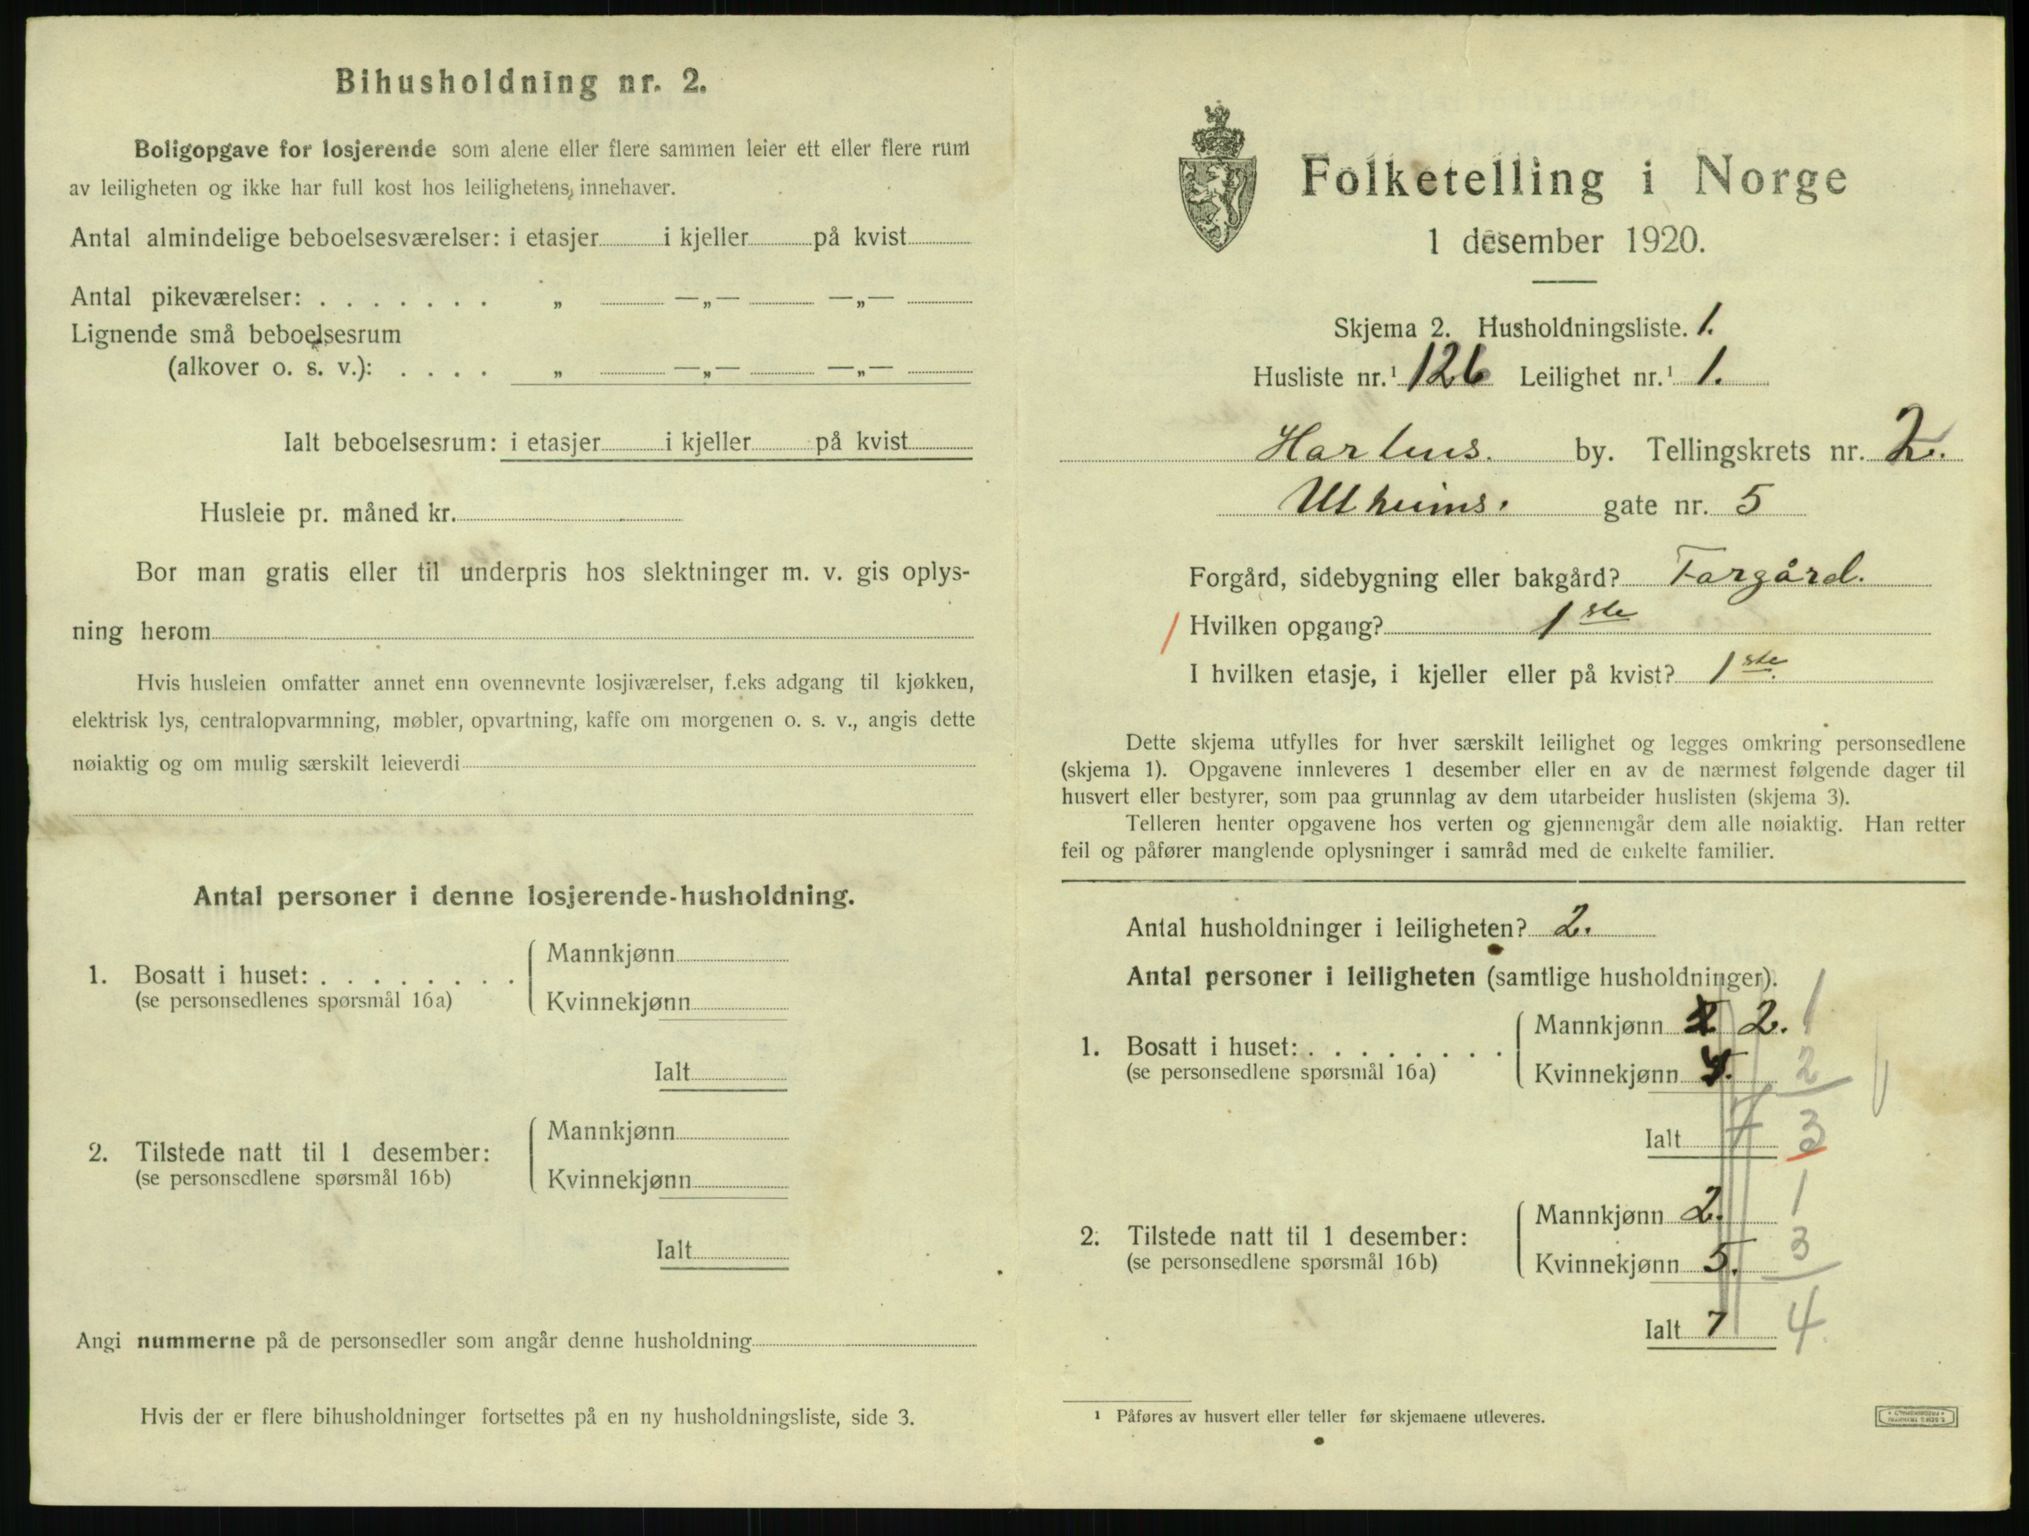 Bihusholdning nr. 2.
Boligopgave for losjerende som alene eller flere sammen leier ett eller flere rum
av leiligheten og ikke har full kost hos leilighetens innehaver.
Antal almindelige beboelsesværelser: i etasjer i kjeller på kvist
Antal pikeværelser: . . . . . . . „ —„— —„—
Lignende små beboelsesrum
(alkover o. s. v.): . . . . „ —„— —„—
Ialt beboelsesrum: i etasjer i kjeller på kvist
Husleie pr. måned kr.
Bor man gratis eller til underpris hos slektninger m. v. gis oplys-
ning herom
Hvis husleien omfatter annet enn ovennevnte losjiværelser, f.eks adgang til kjøkken,
elektrisk lys, centralopvarmning, møbler, opvartning, kaffe om morgenen o. s. v., angis dette
nøiaktig og om mulig særskilt leieverdi
Antal personer i denne losjerende-husholdning.
1. Bosatt i huset: . . . . . . . .
(se personsedlenes spørsmål 16a)
Mannkjønn
Kvinnekjønn
Ialt
2. Tilstede natt til 1 desember:
(se personsedlene spørsmål 16b)
Mannkjønn
Kvinnekjønn
Ialt
Angi nummerne på de personsedler som angår denne husholdning
Hvis der er flere bihusholdninger fortsettes på en ny husholdningsliste, side 3.
Folketelling i Norge
1 desember 1920.
Skjema 2. Husholdningsliste. 1.
Husliste nr.¹ 126 Leilighet nr.¹ 1.
by. Tellingskrets nr. 2.
gate nr. 5
Forgård, sidebygning eller bakgård? Forgård.
Hvilken opgang? 1ste
I hvilken etasje, i kjeller eller på kvist? 1ste.
Dette skjema utfylles for hver særskilt leilighet og legges omkring personsedlene
(skjema 1). Opgavene innleveres 1 desember eller en av de nærmest følgende dager til
husvert eller bestyrer, som paa grunnlag av dem utarbeider huslisten (skjema 3).
Telleren henter opgavene hos verten og gjennemgår dem alle nøiaktig. Han retter
feil og påfører manglende oplysninger i samråd med de enkelte familier.
Antal husholdninger i leiligheten? 2.
Antal personer i leiligheten (samtlige husholdninger).
1. Bosatt i huset: . . . . . . . .
(se personsedlene spørsmål 16a)
Mannkjønn 2. 1
Kvinnekjønn 2
Ialt 7 3
2. Tilstede natt til 1 desember:
(se personsedlene spørsmål 16b)
Mannkjønn 2. 1
Kvinnekjønn 5. 3
Ialt 7 4
¹ Påføres av husvert eller teller før skjemaene utleveres.